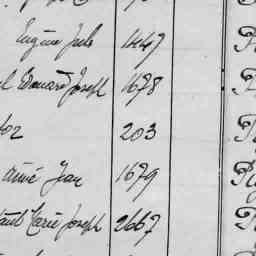 Eugène Jules 1447
Edouard Joseph 1678
203
aimé Jean 1679
Paul Marie Joseph 2667